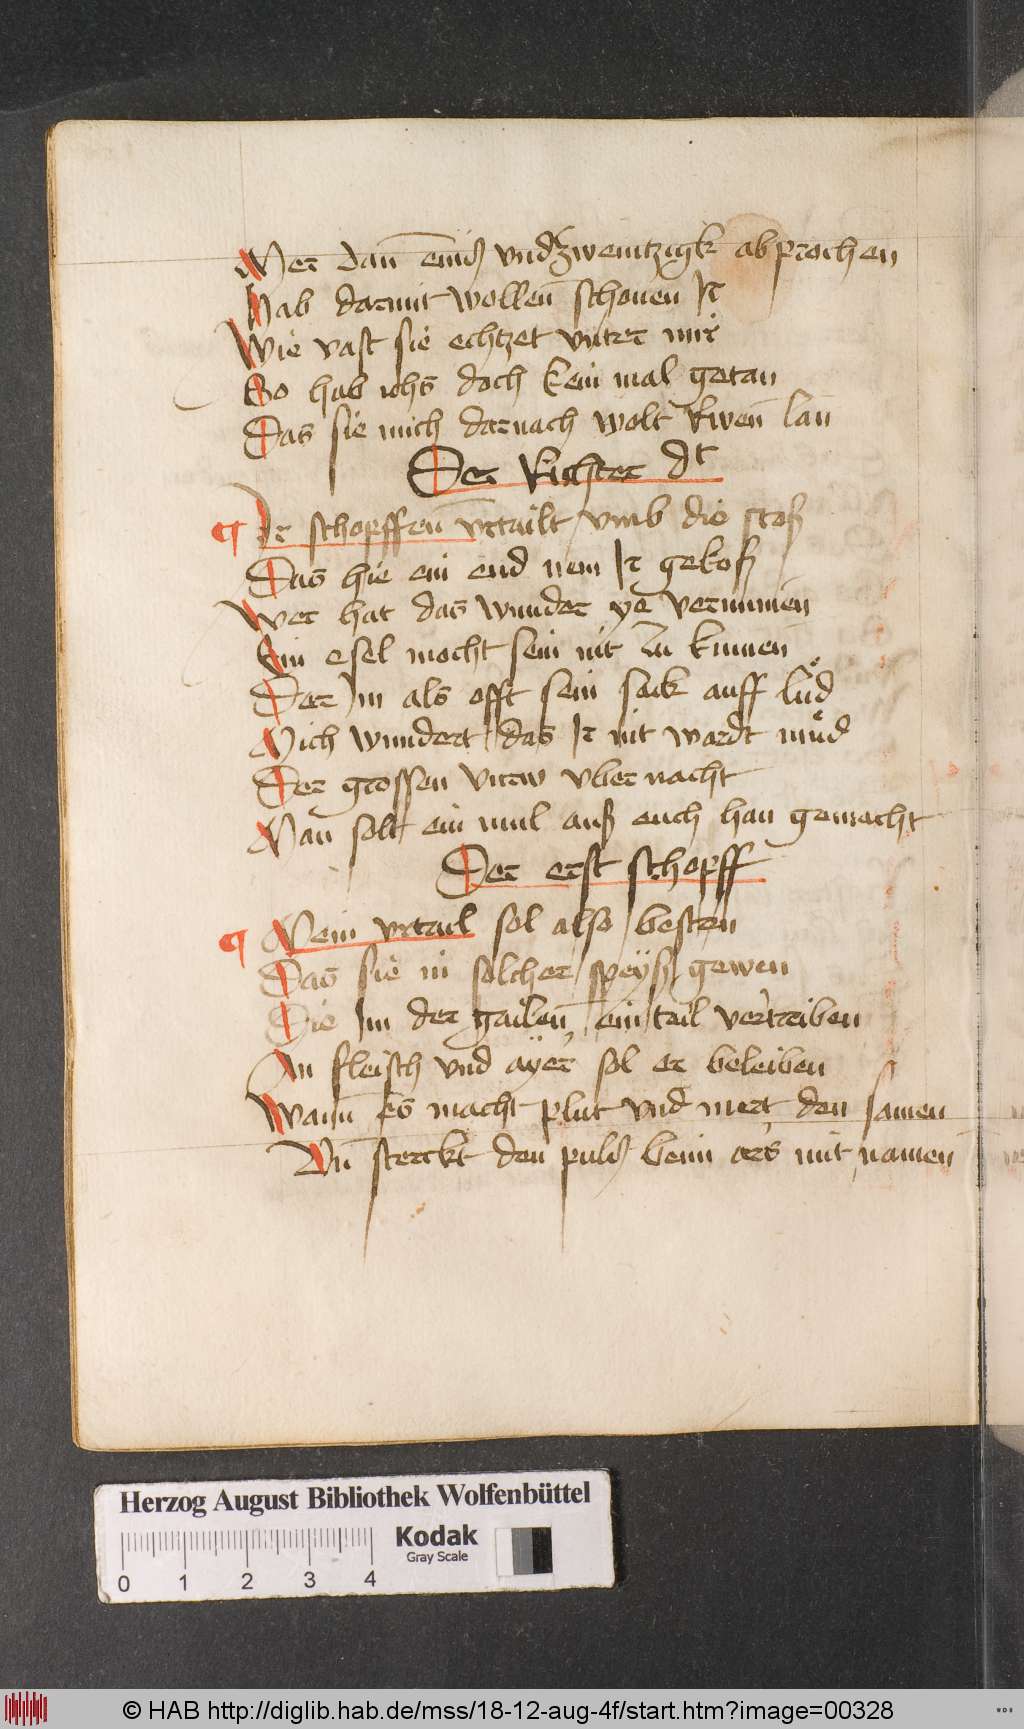 Mer dan̄ eins vnd zweintzigk abprochen
Hab darmit wollen̄ schonen Ir
Wie vast sie echtzet vnter mir
So hab ichs doch kein mal getan
Das sie mich darnach wolt Rwen̄ lan̄
Der Richter dt
¶ Ir schopffen̄ vrtailt vmb die stoß
Das hie ein end nem Ir gekoß
Wer hat das wunder ye vernumen
Ein esel mocht sein nit zu kumen
Der Im als offt sein sack auff lůd
Mich wundert das Ir nit wardt můd
Der grossen vnrw vber nacht
Man solt ein mul auß euch han gemacht
Der erst schopff
¶ Mein vrtail sol also besten
Das sie in solcher speyß gewen
Die Im der gailen̄ ein tail vertreiben
An fleisch vnd ayer sol er beleiben
Wann̄ es macht plut vnd mert den samen
Vn̄ sterckt den puls beim ars mit namen
Herzog August Bibliothek Wolfenbüttel
Kodak
Gray Scale
0 1 2 3 4
© HAB http://diglib.hab.de/mss/18-12-aug-4f/start.htm?image=00328